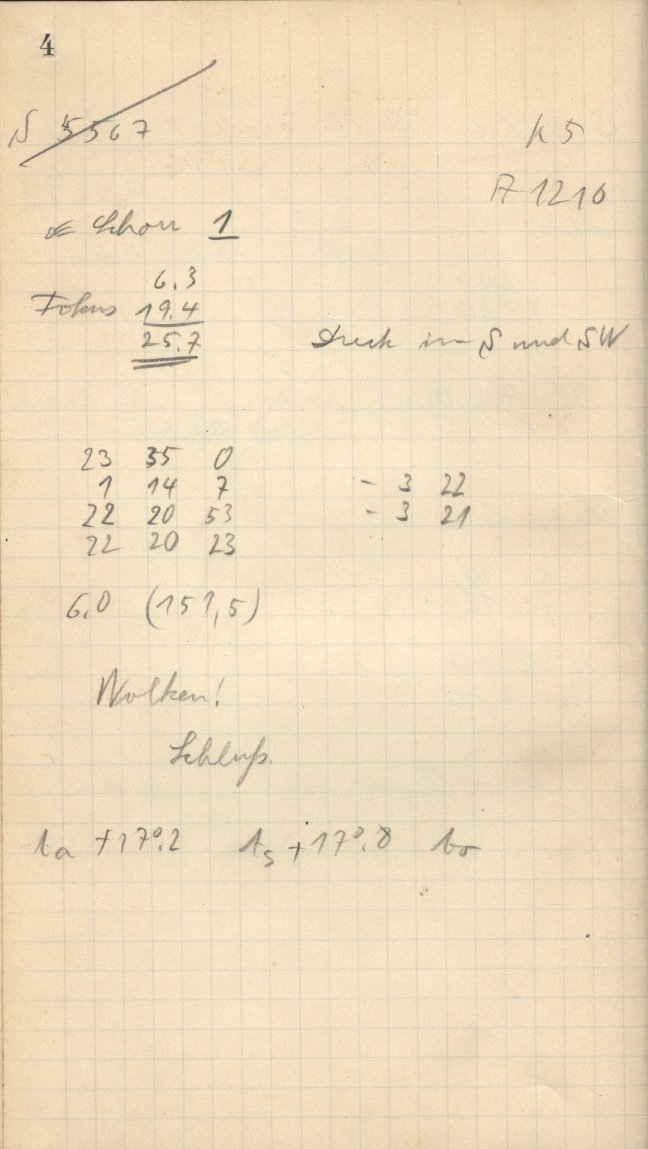 4
S 5567
K 5
A 1216
Schorr 1
6.3
Fokus 19.4
25.7
Dreck im S und SW
23 35 0
1 14 7 - 3 22
22 20 53 - 3 21
22 20 23
6,0 (151,5)
Wolken!
Schluß.
ta +17°.2 ts +17°.8